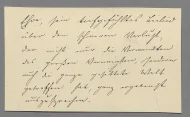 Ehre, sein tiefgefühltes Beileid
über den schweren Verlust,
der nicht nur die Verwandten
des großen            sondern
auch die ganze gebildete Welt
getroffen hat, ganz ergebenst
auszusprechen.